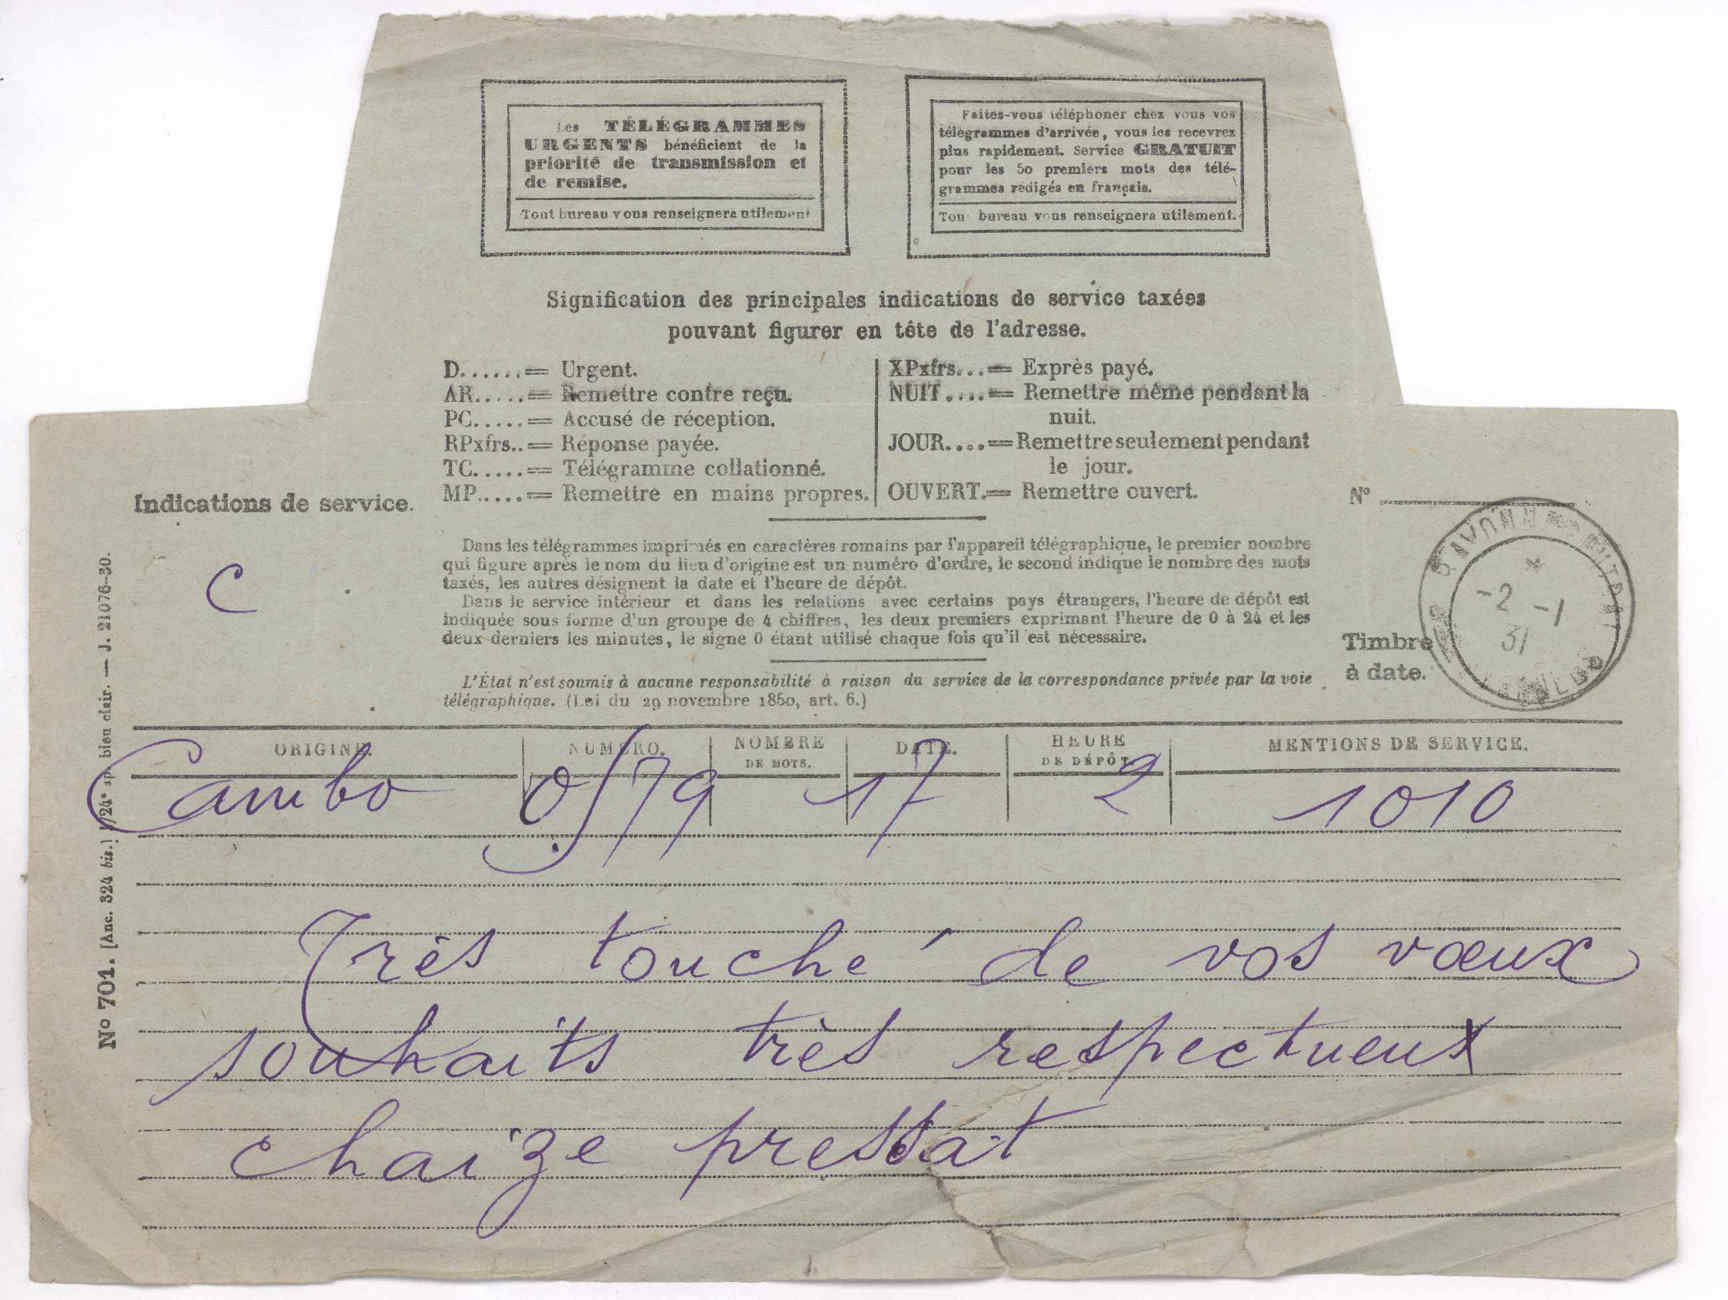 Les TÉLÉGRAMMES
URGENTS bénéficient de la
priorité de transmission et
de remise.
Tout bureau vous renseignera utilement
Faites-vous téléphoner chez vous vos
télégrammes d'arrivée, vous les recevrez
plus rapidement. Service GRATUIT
pour les 50 premiers mots des télé-
grammes rédigés en français.
Tout bureau vous renseignera utilement.
Signification des principales indications de service taxées
pouvant figurer en tête de l'adresse.
D......= Urgent.
AR.....= Remettre contre reçu.
PC.....= Accusé de réception.
RPxfrs..= Réponse payée.
TC.....= Télégramme collationné.
MP.....= Remettre en mains propres.
XPxfrs...= Exprès payé.
NUIT....= Remettre même pendant la
nuit.
JOUR....= Remettre seulement pendant
le jour.
OUVERT.= Remettre ouvert.
Indications de service.
C
Nº
Dans les télégrammes imprimés en caractères romains par l'appareil télégraphique, le premier nombre
qui figure après le nom du lieu d'origine est un numéro d'ordre, le second indique le nombre des mots
taxés, les autres désignent la date et l'heure de dépôt.
Dans le service intérieur et dans les relations avec certains pays étrangers, l'heure de dépôt est
indiquée sous forme d'un groupe de 4 chiffres, les deux premiers exprimant l'heure de 0 à 24 et les
deux derniers les minutes, le signe 0 étant utilisé chaque fois qu'il est nécessaire.
L'État n'est soumis à aucune responsabilité à raison du service de la correspondance privée par la voie
télégraphique. (Loi du 29 novembre 1850, art. 6.)
Timbre
à date.
-2 -1
31
ORIGINE. NUMÉRO. NOMBRE DE MOTS. DATE. HEURE DE DÉPÔT. MENTIONS DE SERVICE.
Cambo 0579 17 2 1010
Très touché de vos vœux
souhaits très respectueux
chaize pressat
Nº 701. (Anc. 324 bis.) bleu clair. — J. 21076-30.